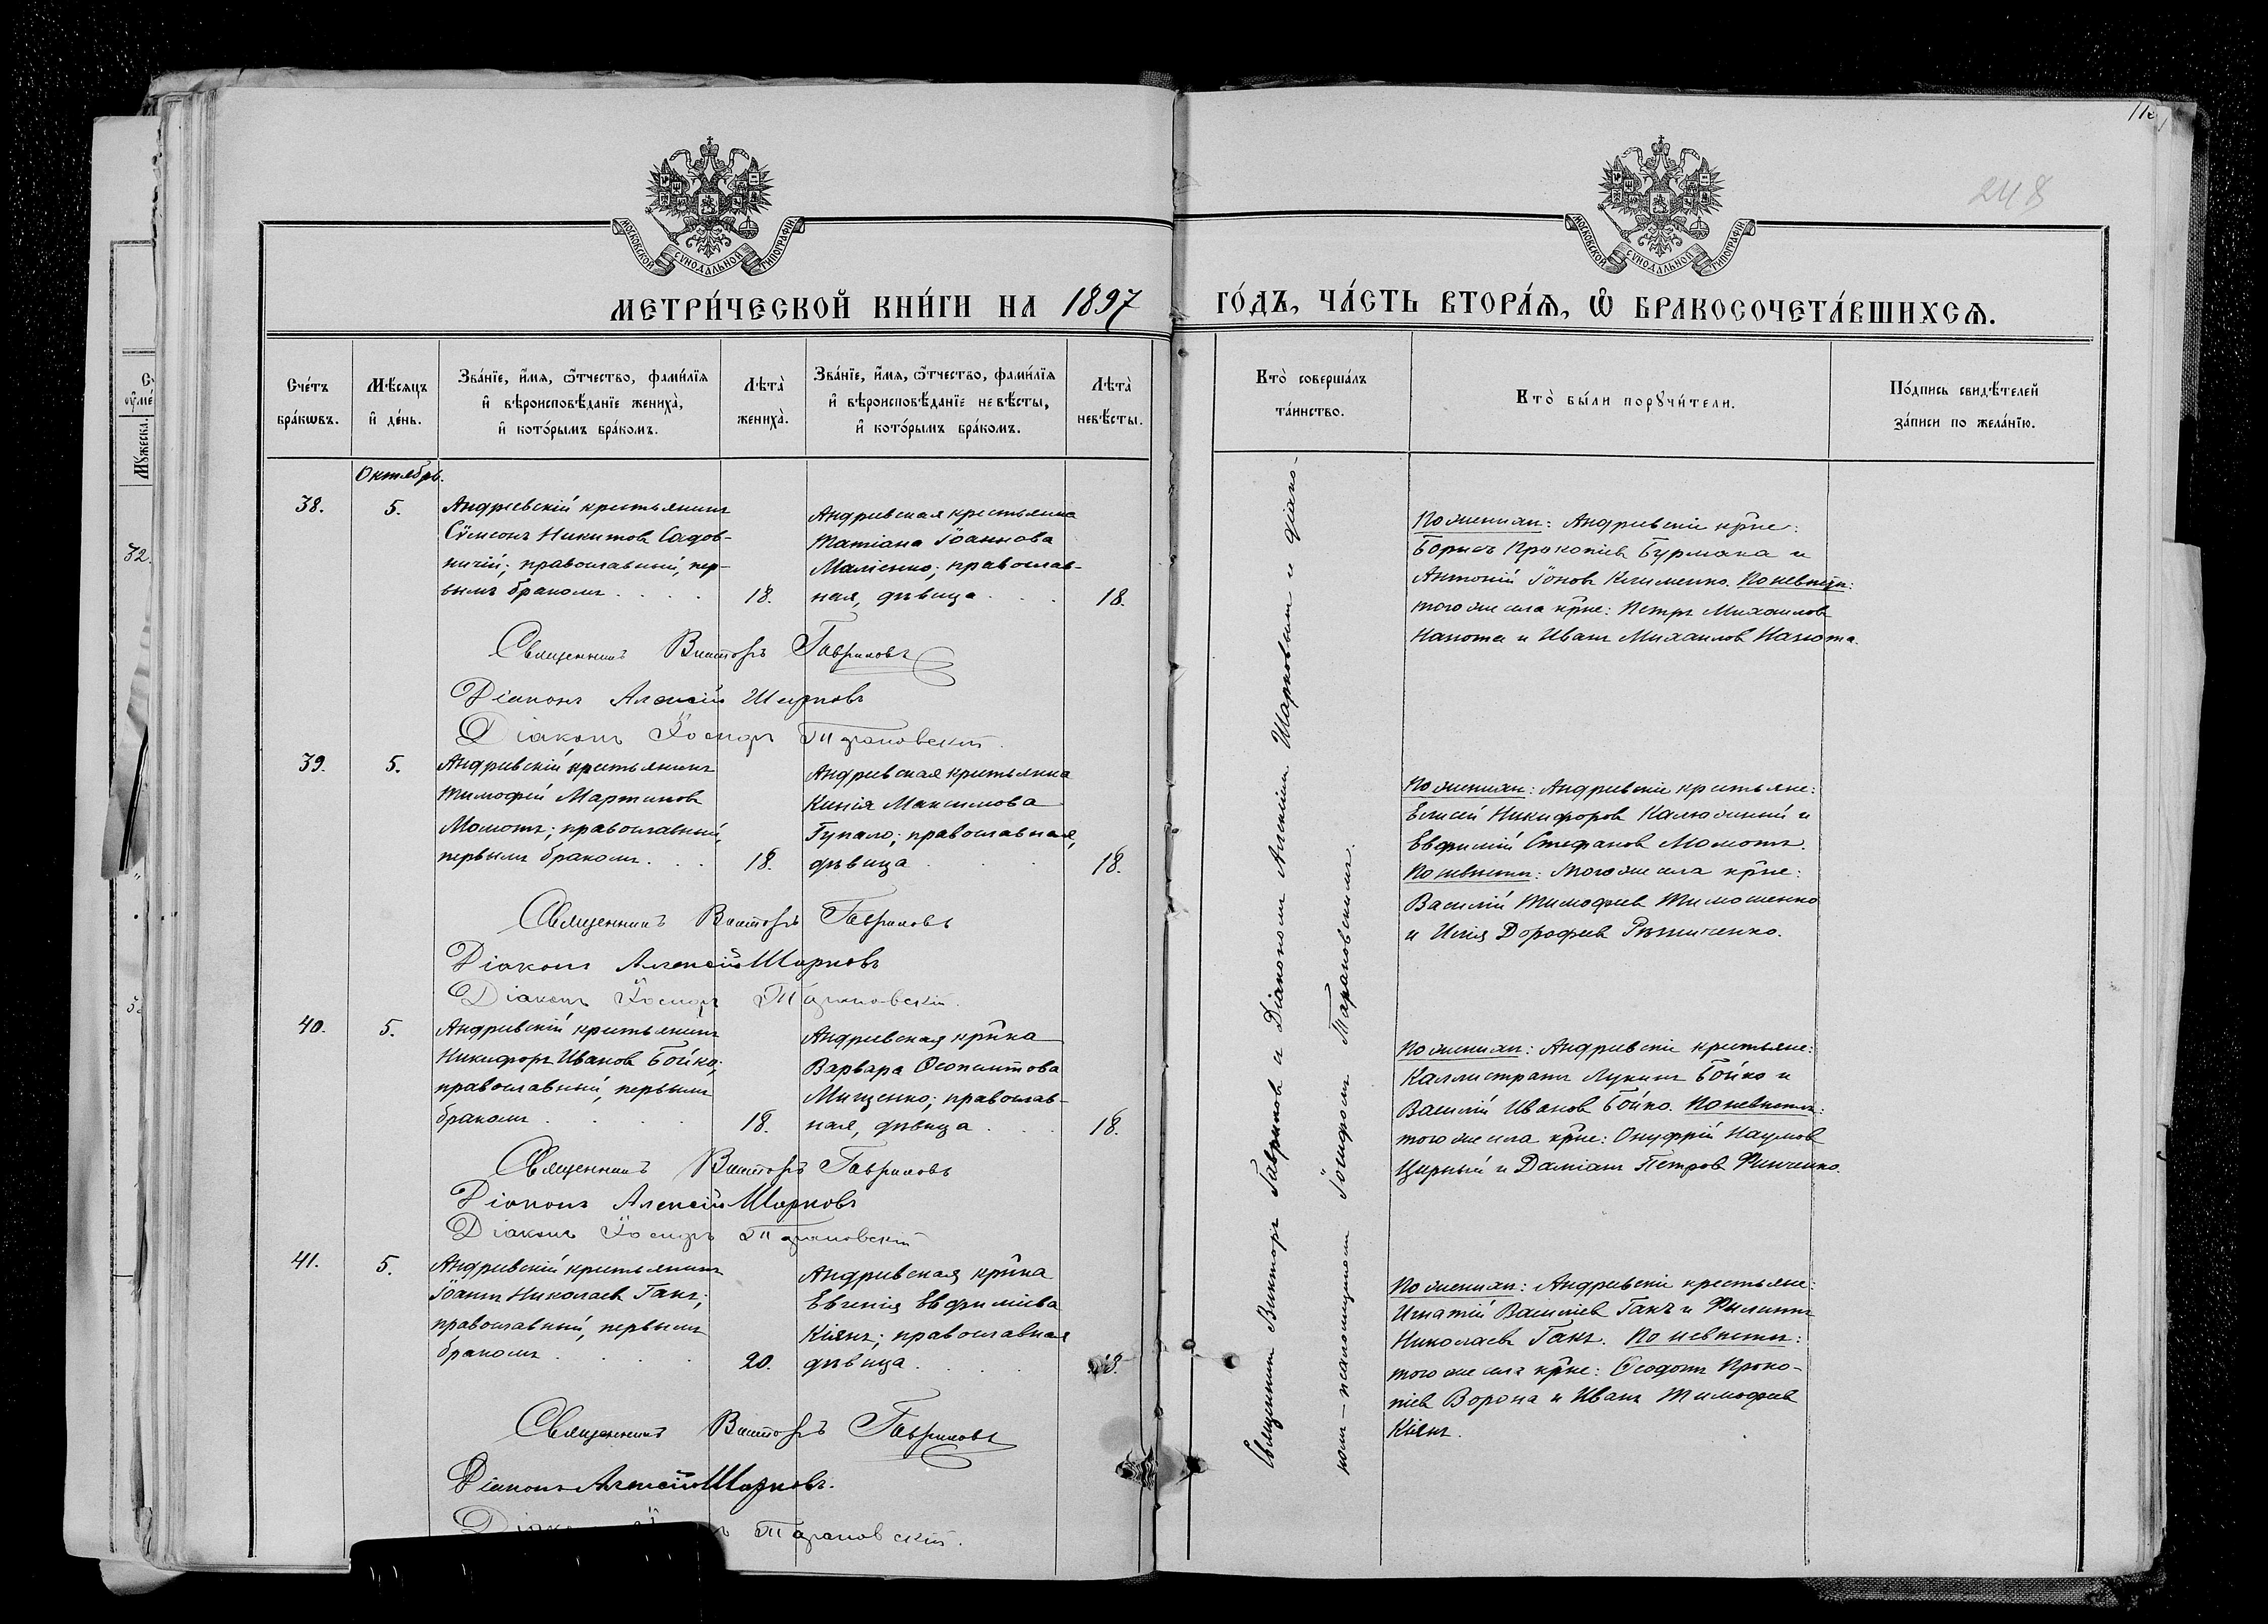 118
248
МОСКОВСКОЙ СѴНОДАЛЬНОЙ ТИПОГРАФІИ
МОСКОВСКОЙ СѴНОДАЛЬНОЙ ТИПОГРАФІИ
МЕТРИ́ЧЕСКОЙ КНИ́ГИ НА 1897 ГО́ДЪ, ЧА́СТЬ ВТОРА́Ѧ, Ѡ҆ БРАКОСОЧЕТА́ВШИХСѦ.
Сче́тъ бра́кѡвъ.
Мѣ́сяцъ и҆ де́нь.
Зва́нїе, и҆́мя, ѻ҆́тчество, фами́лїя
и҆ вѣроисповѣ́данїе жениха̀,
и҆ кото́рымъ бра́комъ.
Лѣта̀ жениха̀.
Зва́нїе, и҆́мя, ѻ҆́тчество, фами́лїя
и҆ вѣроисповѣ́данїе невѣ́сты,
и҆ кото́рымъ бра́комъ.
Лѣта̀ невѣ́сты.
Кто̀ соверша́лъ
та́инство.
Кто̀ бы́ли порꙋчи́тели.
По́дпись свидѣ́телей
за́писи по жела́нїю.
Октябрь.
38.
5.
Андреевскій крестьянинъ
Сѵмеонъ Никитовъ Садов-
ничій; православный, пер-
вымъ бракомъ
18.
Андреевская крестьянка
Татіана Іоаннова
Малѣенко; православ-
ная, дѣвица
18.
По женихѣ: Андреевскіе кр̃не:
Борисъ Прокопіевъ Бурмака и
Антоній Іоновъ Клименко. По невѣстѣ:
того же села кр̃не: Петръ Михаиловъ
и Иванъ Михаиловъ
Священникъ Викторъ Гавриловъ
Діаконъ Алексій Шарковъ
Діаконъ Іосифъ Тарановскій.
39.
5.
Андреевскій крестьянинъ
Тимофей Мартиновъ
Момотъ; православный,
первымъ бракомъ
18.
Андреевская крестьянка
Ксенія Максимова
Гупало; православная,
дѣвица
18.
По женихѣ: Андреевскіе крестьяне:
Елисей Никифоровъ Калюжный и
Евфимій Стефановъ Момотъ.
По невѣстѣ: того же села кр̃не:
Василій Тимофеевъ Тимошенко
и Илія Дорофеевъ
Священникъ Викторъ Гавриловъ
Діаконъ Алексій Шарковъ
Діаконъ Іосифъ Тарановскій.
40.
5.
Андреевскій крестьянинъ
Никифоръ Ивановъ Бойко;
православный, первымъ
бракомъ
18.
Андреевская кр̃нка
Варвара Ѳеопемптова
Мищенко; православ-
ная, дѣвица
18.
По женихѣ: Андреевскіе крестьяне:
Каллистратъ Лукинъ Бойко и
Василій Ивановъ Бойко. По невѣстѣ:
того же села кр̃не: Онуфрій Наумовъ
и Даміанъ Петровъ
Священникъ Викторъ Гавриловъ
Діаконъ Алексій Шарковъ
Діаконъ Іосифъ Тарановскій
41.
5.
Андреевскій крестьянинъ
Іоаннъ Николаевъ Гакъ;
православный, первымъ
бракомъ
20.
Андреевская кр̃нка
Евгенія Евфиміева
Кіянъ; православная
дѣвица
18.
По женихѣ: Андреевскіе крестьяне:
Игнатій Василіевъ Гакъ и Филиппъ
Николаевъ Гакъ. По невѣстѣ:
того же села кр̃не: Ѳеодотъ Проко-
піевъ Ворона и Иванъ Тимофеевъ
Кіянъ.
Священникъ Викторъ Гавриловъ
Діаконъ Алексій Шарковъ.
Тарановскій.
Священникъ Викторъ Гавриловъ и Діакономъ Алексіемъ Шарковымъ и діако-
номъ-псаломщикомъ Іосифомъ Тарановскимъ.